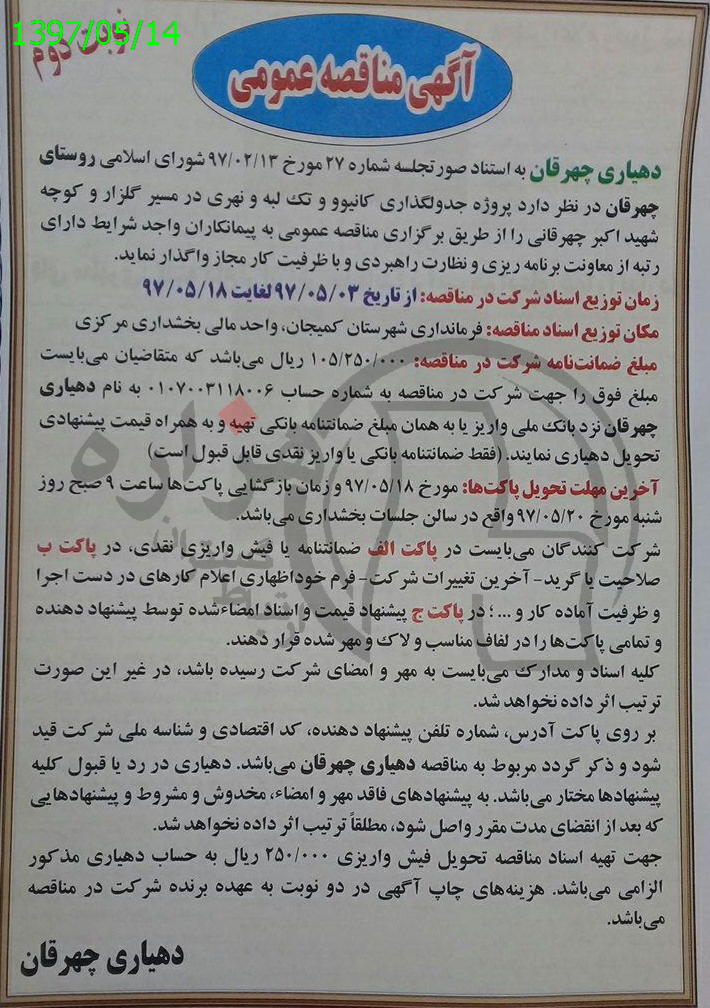 1397/05/14
نوبت دوم
آگهی مناقصه عمومی
دهیاری چهرقان به استناد صورتجلسه شماره ۲۷ مورخ ۹۷/۰۲/۱۳ شورای اسلامی روستای
چهرقان در نظر دارد پروژه جدولگذاری کانیوو و تک لبه و نهری در مسیر گلزار و کوچه
شهید اکبر چهرقانی را از طریق برگزاری مناقصه عمومی به پیمانکاران واجد شرایط دارای
رتبه از معاونت برنامه ریزی و نظارت راهبردی و با ظرفیت کار مجاز واگذار نماید.
زمان توزیع اسناد شرکت در مناقصه: از تاریخ ۹۷/۰۵/۰۳ لغایت ۹۷/۰۵/۱۸
مکان توزیع اسناد مناقصه: فرمانداری شهرستان کمیجان، واحد مالی بخشداری مرکزی
مبلغ ضمانت‌نامه شرکت در مناقصه: ۱۰۵/۲۵۰/۰۰۰ ریال می‌باشد که متقاضیان می‌بایست
مبلغ فوق را جهت شرکت در مناقصه به شماره حساب ۰۱۰۷۰۰۳۱۱۸۰۰۶ به نام دهیاری
چهرقان نزد بانک ملی واریز یا به همان مبلغ ضمانتنامه بانکی تهیه و به همراه قیمت پیشنهادی
تحویل دهیاری نمایند. (فقط ضمانتنامه بانکی یا واریز نقدی قابل قبول است)
آخرین مهلت تحویل پاکت‌ها: مورخ ۹۷/۰۵/۱۸ و زمان بازگشایی پاکت‌ها ساعت ۹ صبح روز
شنبه مورخ ۹۷/۰۵/۲۰ واقع در سالن جلسات بخشداری می‌باشد.
شرکت کنندگان می‌بایست در پاکت الف ضمانتنامه یا فیش واریزی نقدی، در پاکت ب
صلاحیت یا گرید- آخرین تغییرات شرکت- فرم خوداظهاری اعلام کارهای در دست اجرا
و ظرفیت آماده کار و ... ؛ در پاکت ج پیشنهاد قیمت و اسناد امضاءشده توسط پیشنهاد دهنده
و تمامی پاکت‌ها را در لفاف مناسب و لاک و مهر شده قرار دهند.
کلیه اسناد و مدارک می‌بایست به مهر و امضای شرکت رسیده باشد، در غیر این صورت
ترتیب اثر داده نخواهد شد.
بر روی پاکت آدرس، شماره تلفن پیشنهاد دهنده، کد اقتصادی و شناسه ملی شرکت قید
شود و ذکر گردد مربوط به مناقصه دهیاری چهرقان می‌باشد. دهیاری در رد یا قبول کلیه
پیشنهادها مختار می‌باشد. به پیشنهادهای فاقد مهر و امضاء، مخدوش و مشروط و پیشنهادهایی
که بعد از انقضای مدت مقرر واصل شود، مطلقاً ترتیب اثر داده نخواهد شد.
جهت تهیه اسناد مناقصه تحویل فیش واریزی ۲۵۰/۰۰۰ ریال به حساب دهیاری مذکور
الزامی می‌باشد. هزینه‌های چاپ آگهی در دو نوبت به عهده برنده شرکت در مناقصه
می‌باشد.
دهیاری چهرقان